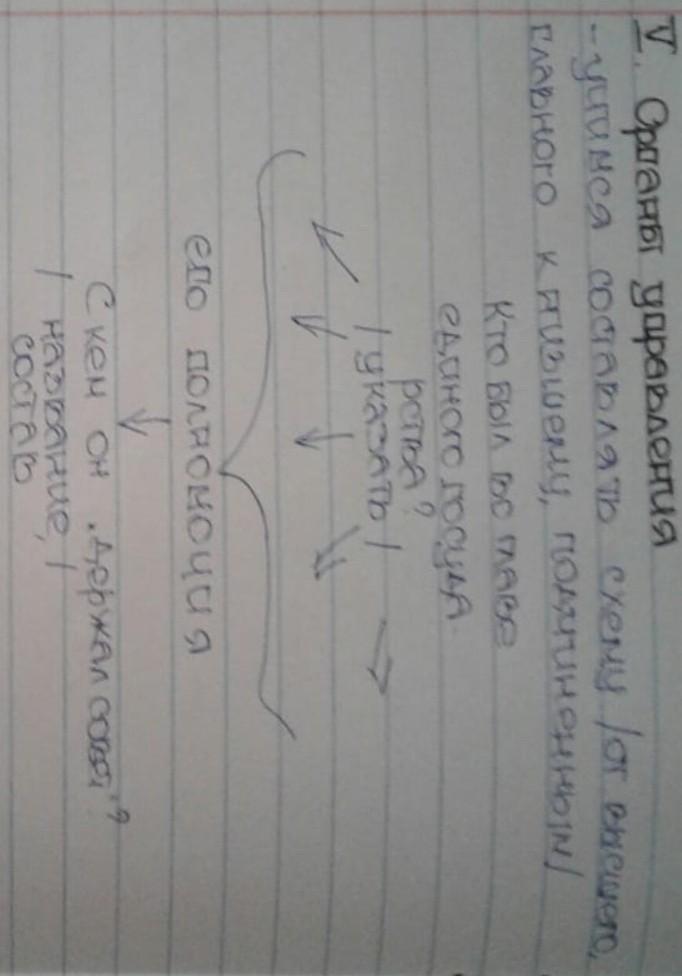 V. Органы управления
- учимся составлять схему /от высшего,
главного к низшему, подчиненным/
Кто был во главе
единого государ
ства?
/указать/
его полномочия
С кем он "держал совет"?
/название,/
состав